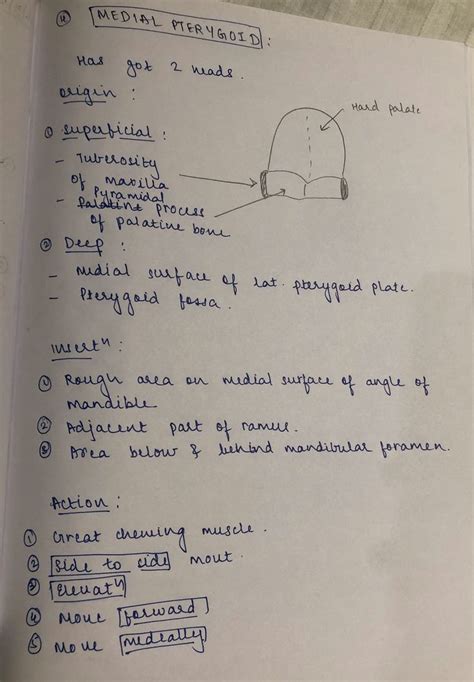 ④ MEDIAL PTERYGOID :
Has got 2 heads.
Origin :
Hard palate
① Superficial :
- Tuberosity
of maxilla
Pyramidal
- Palatint process
of palatine bone
② Deep :
- Medial surface of lat. pterygoid plate.
- Pterygoid fossa.
Insertⁿ :
① Rough area on medial surface of angle of
mandible
② Adjacent part of ramus.
③ Area below & behind mandibular foramen.
Action :
① Great chewing muscle.
② Side to side movt.
③ Elevatⁿ
④ Move forward
⑤ Move medially